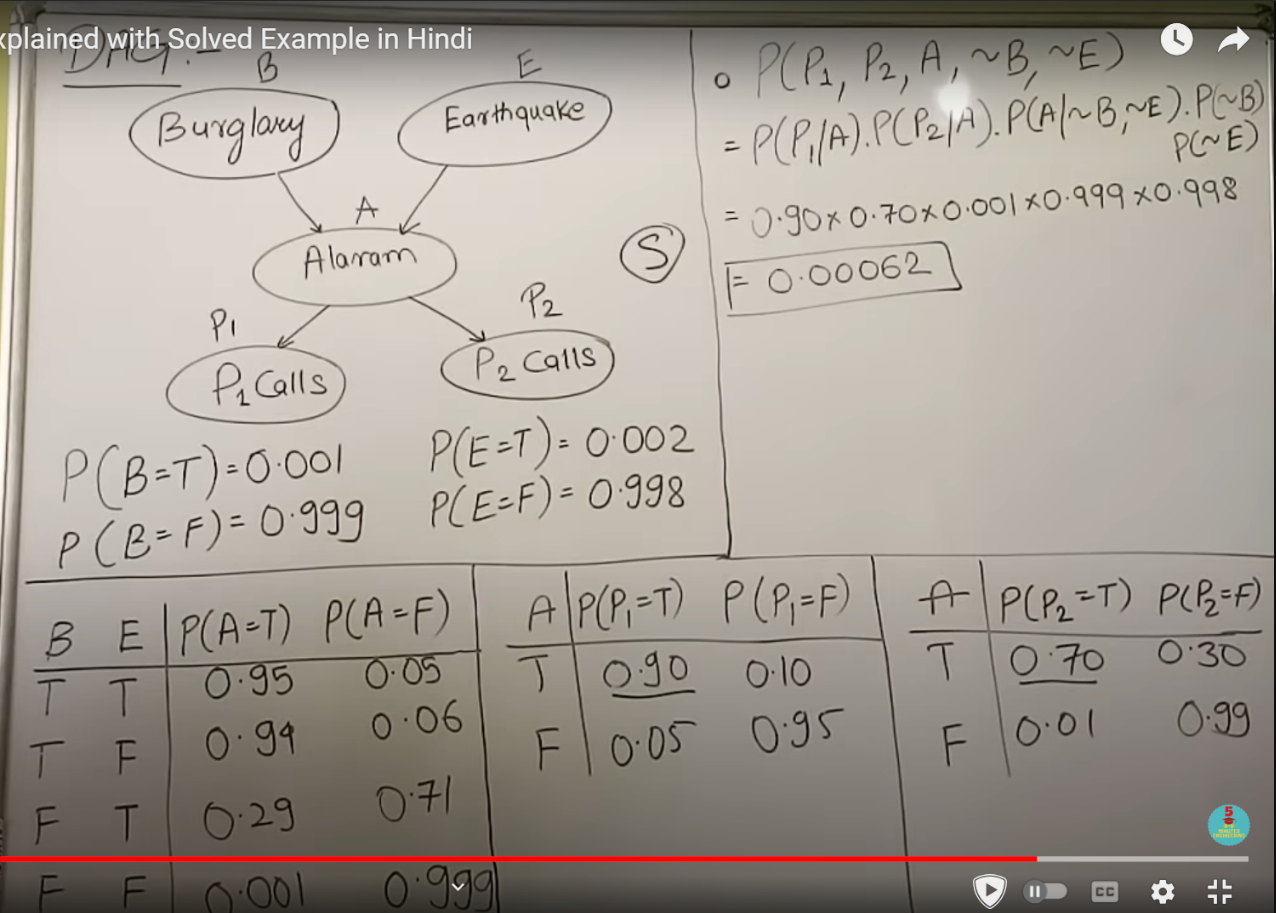 xplained with Solved Example in Hindi
DAG:-
B
E
Burglary
Earthquake
A
Alaram
S
P1
P2
P1 Calls
P2 Calls
P(B=T)=0.001
P(B=F)=0.999
P(E=T)=0.002
P(E=F)=0.998
o P(P1, P2, A, ~B, ~E)
= P(P1/A).P(P2/A).P(A/~B,~E).P(~B)
P(~E)
= 0.90×0.70×0.001×0.999×0.998
= 0.00062
B E P(A=T) P(A=F)
T T 0.95 0.05
T F 0.94 0.06
F T 0.29 0.71
F F 0.001 0.999
A P(P1=T) P(P1=F)
T 0.90 0.10
F 0.05 0.95
A P(P2=T) P(P2=F)
T 0.70 0.30
F 0.01 0.99
5
CC